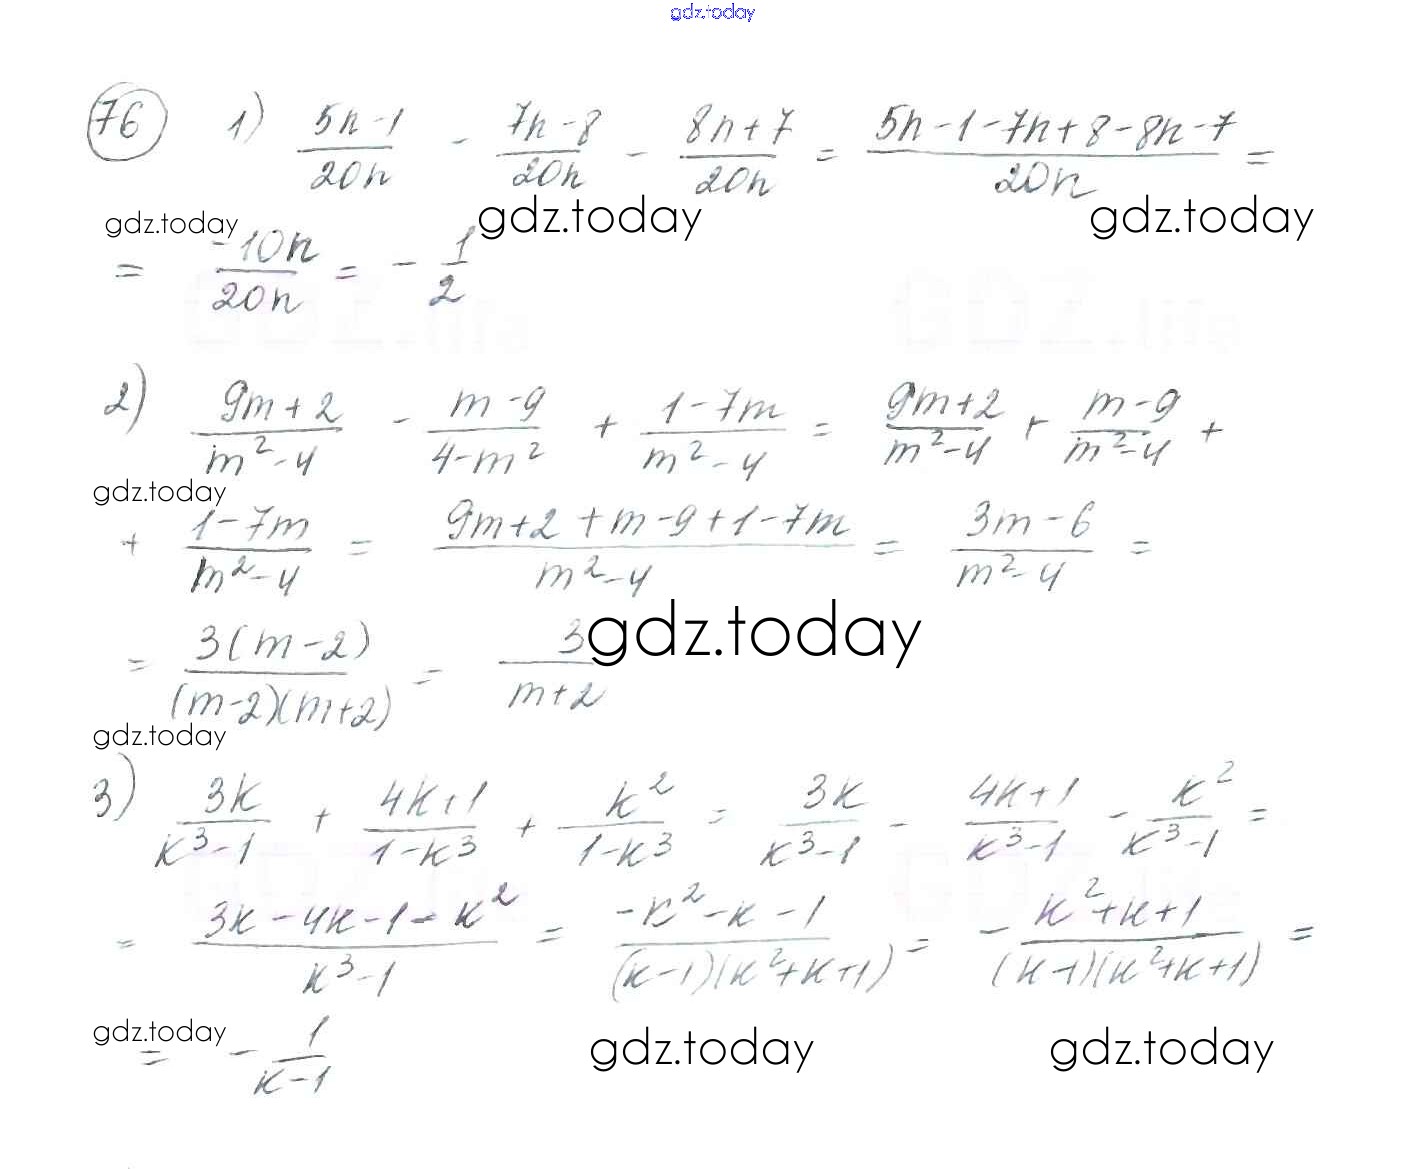 gdz.today
76 1) (5n-1)/(20n) - (7n-8)/(20n) - (8n+7)/(20n) = (5n-1-7n+8-8n-7)/(20n) =
gdz.today gdz.today gdz.today
= (-10n)/(20n) = - 1/2
GDZ.life GDZ.life
2) (9m+2)/(m²-4) - (m-9)/(4-m²) + (1-7m)/(m²-4) = (9m+2)/(m²-4) + (m-9)/(m²-4) +
gdz.today
+ (1-7m)/(m²-4) = (9m+2+m-9+1-7m)/(m²-4) = (3m-6)/(m²-4) =
gdz.today
= (3(m-2))/((m-2)(m+2)) = 3/(m+2)
gdz.today
3) (3k)/(k³-1) + (4k+1)/(1-k³) + (k²)/(1-k³) = (3k)/(k³-1) - (4k+1)/(k³-1) - (k²)/(k³-1) =
GDZ.life GDZ.life
= (3k-4k-1-k²)/(k³-1) = (-k²-k-1)/((k-1)(k²+k+1)) = - (k²+k+1)/((k-1)(k²+k+1)) =
gdz.today gdz.today gdz.today
= - 1/(k-1)